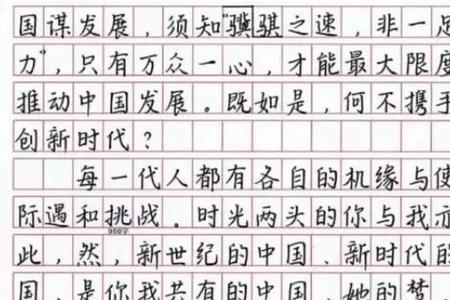 国谋发展，须知"骥骐之速，非一足
力"，只有万众一心，才能最大限度
推动中国发展。既如是，何不携手
创新时代？
每一代人都有各自的机缘与使
际遇和挑战。时光两头的你与我亦
900字
此，然，新世纪的中国、新时代的
国，是你我共有的中国，她的梦，